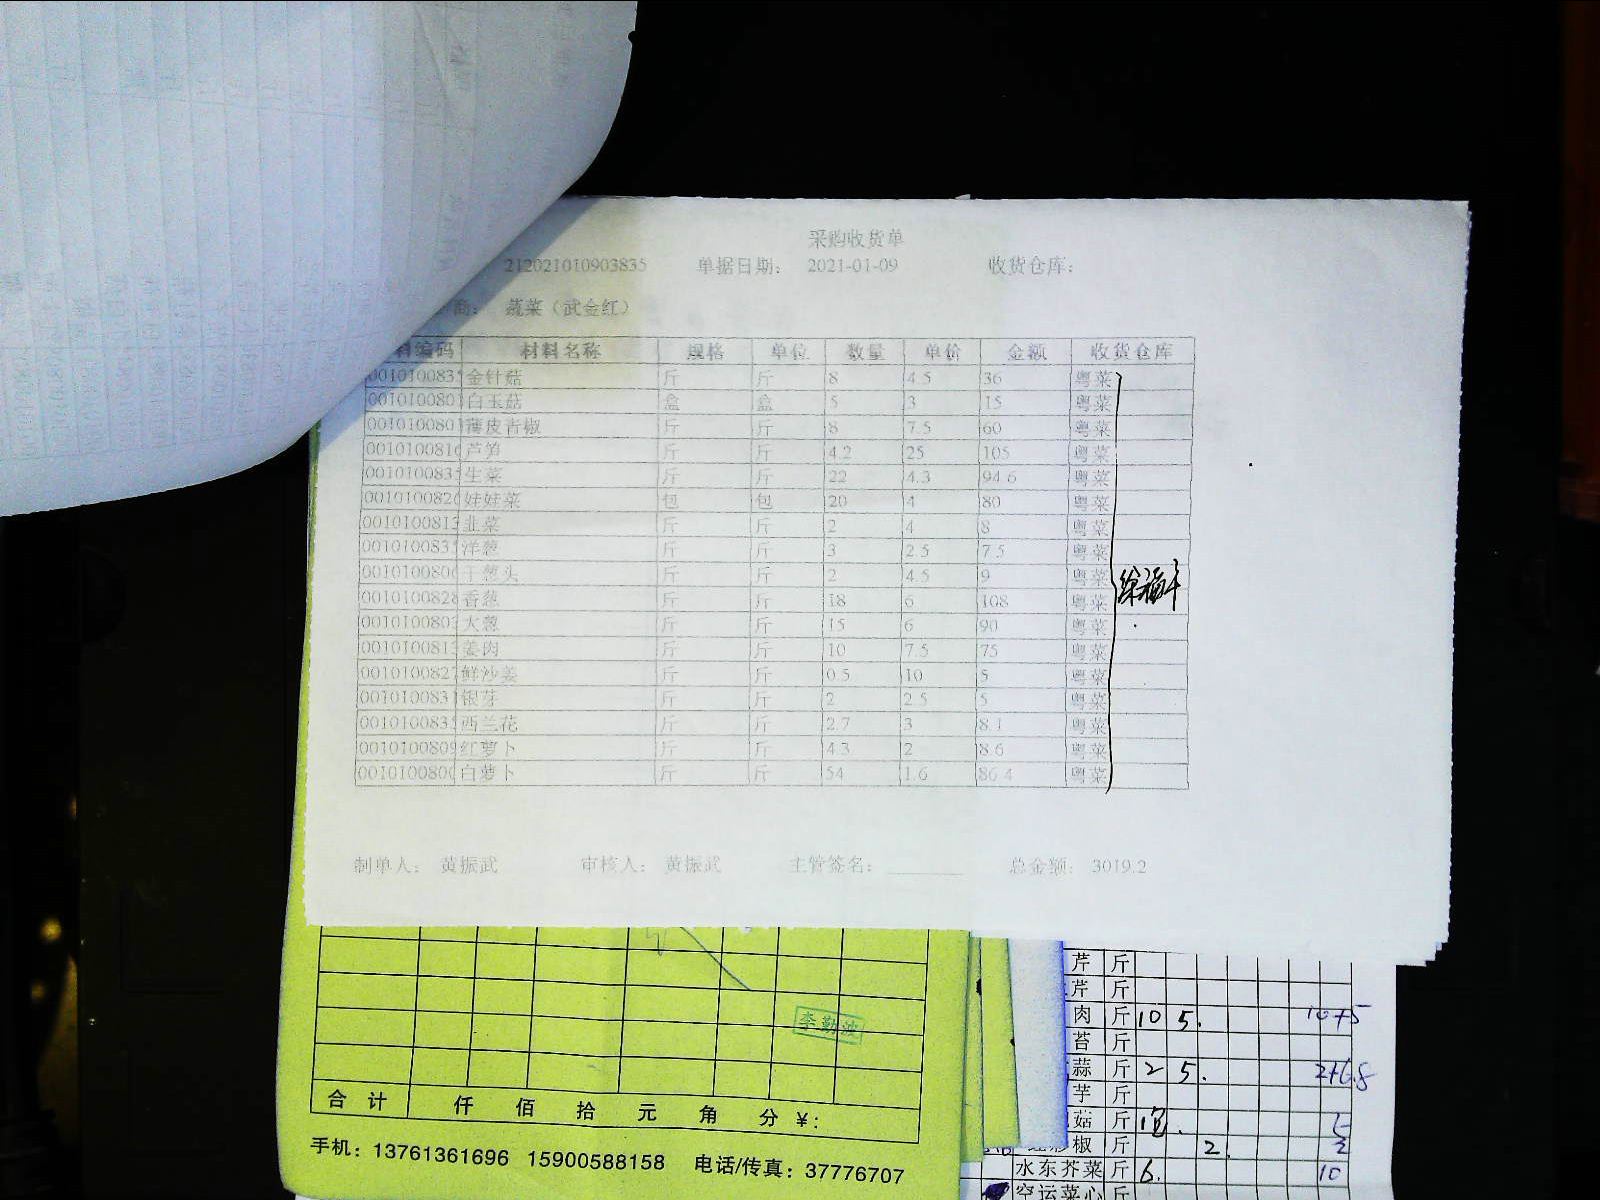 采购收货单
212021010903835 单据日期： 2021-01-09 收货仓库：
商： 蔬菜（武金红）
料编码 材料名称 规格 单位 数量 单价 金额 收货仓库
001010083 金针菇 斤 斤 8 4.5 36 粤菜
001010080 白玉菇 盒 盒 5 3 15 粤菜
001010080 薄皮青椒 斤 斤 8 7.5 60 粤菜
001010081 芦笋 斤 斤 4.2 25 105 粤菜
001010083 生菜 斤 斤 22 4.3 94.6 粤菜
001010082 娃娃菜 包 包 20 4 80 粤菜
001010081 韭菜 斤 斤 2 4 8 粤菜
001010083 洋葱 斤 斤 3 2.5 7.5 粤菜
001010080 干葱头 斤 斤 2 4.5 9 粤菜
001010082 香葱 斤 斤 18 6 108 粤菜
001010080 大葱 斤 斤 15 6 90 粤菜
001010081 姜肉 斤 斤 10 7.5 75 粤菜
001010082 鲜沙姜 斤 斤 0.5 10 5 粤菜
001010083 银芽 斤 斤 2 2.5 5 粤菜
001010083 西兰花 斤 斤 2.7 3 8.1 粤菜
001010080 红萝卜 斤 斤 4.3 2 8.6 粤菜
001010080 白萝卜 斤 斤 54 1.6 86.4 粤菜
制单人： 黄振武 审核人： 黄振武 主管签名： 总金额： 3019.2
李勤波
合计 仟 佰 拾 元 角 分 ¥：
手机：13761361696 15900588158 电话/传真：37776707
芹 斤
芹 斤
肉 斤 10 5. 10+5
苔 斤
蒜 斤 2 5. 2+6.8
芋 斤
菇 斤
椒 斤 2. 2
水东芥菜 斤 6. 10
空运菜心 斤